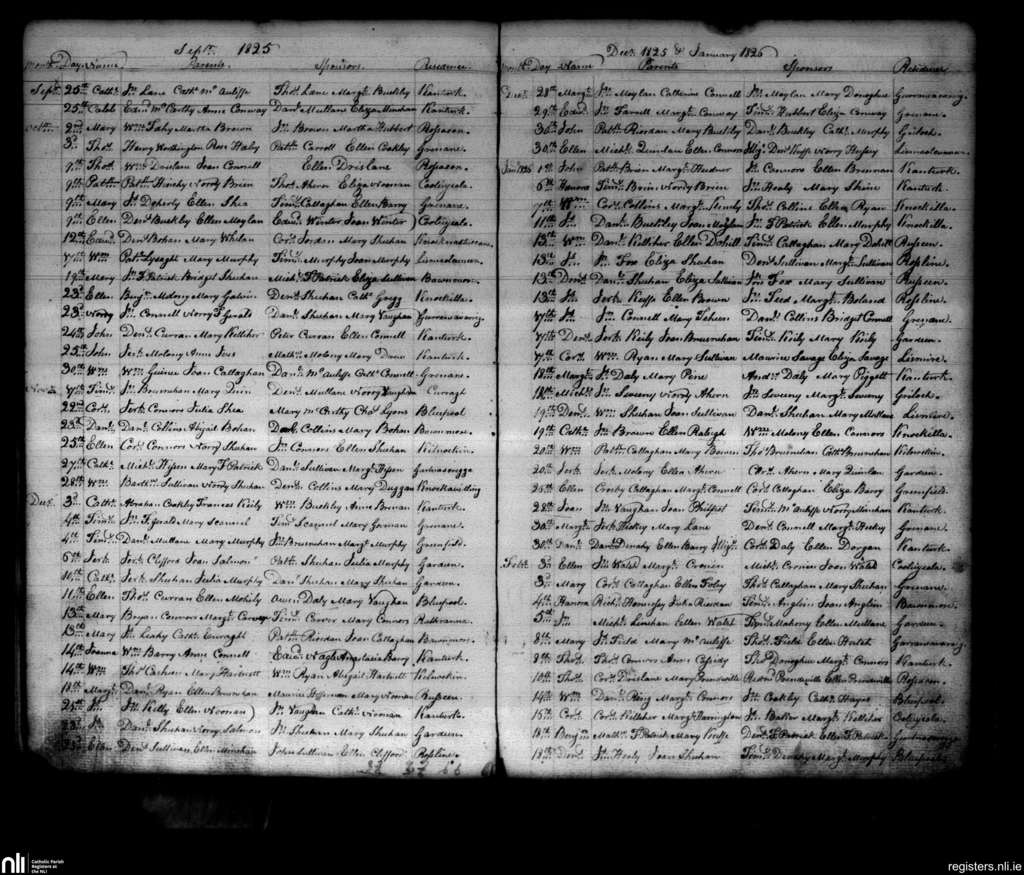 Sept. 1825
Month Day Name Parents Sponsors Residence
Sept. 25th Cathe. Jno. Lane Cathe. McAuliffe Thos. Lane Margt. Buckley Kanturk.
25th Caleb Edmd. McCarthy Anne Conway Danl. Mullane Eliza Kanturk.
Octr. 2nd Mary Wm. Fahy Martha Brown Jno. Brown Martha Hubbert Rossacon.
3d Thos. Henry Worthington Rose Haly Patt. Carroll Ellen Coakley Greenane.
9th Thos. Wm. Drislane Joan Connell Ellen Drislane Rossacon.
9th Patt. Patt. Norry Brien Thos. Ahern Eliza Noonan Coolgeela.
9th Mary Jno. Doherty Ellen Shea Timy. Callaghan Ellen Barry Greenane.
9th Ellen Denl. Buckley Ellen Moylan Edmd. Winter Joan Winter Coolgeela.
12th Edmd. Denl. Bohan Mary Whelan Corn. Jordan Mary Sheehan
17th Wm. Patt. Lysaght Mary Murphy Timy. Murphy Joan Murphy
19th Mary Jno. FPatrick Bridget Sheehan Michl. FPatrick Eliza Sullivan Bawnmore.
23d Ellen Benjn. Molony Mary Galvin Denl. Sheehan Cathe. Knockilla.
23d Norry Jno. Connell Norry FGerald Danl. Sheehan Mary Vaughan
24th John Denl. Curran Mary Kelleher Peter Curran Ellen Connell Kanturk.
25th John Jerh. Molony Anne Mathw. Molony Mary Kanturk.
30th Wm. Wm. Guinee Joan Callaghan Danl. McAuliffe Cathe. Connell Greenane.
Novr. 17th Timy. Jno. Bresnahan Mary Denl. Mullane Norry Vaughan Curragh
22nd Corn. Jerh. Connors Julia Shea Mary McCarthy Chas. Lyons Bluepool
23d Danl. Danl. Collins Abigail Bohan Collins Mary Bohan Bawnmore.
25th Ellen Corn. Connors Norry Sheehan Jno. Connors Ellen Sheehan
27th Cathe. Michl. Hyssen Mary FPatrick Danl. Sullivan Margt. Hyssen
28th Wm. Bartw. Sullivan Norry Sheehan Denl. Collins Mary Duggan
Decr. 3d Cathe. Abraham Coakley Frances Keily Wm. Buckley Anne Kanturk.
4th Timy. Jno. FGerald Mary Scannel Timy. Scannel Mary Gorman Greenane.
4th Timy. Danl. Mullane Mary Murphy Jno. Bresnahan Margt. Murphy Greenfield.
6th Jerh. Jerh. Clifford Joan Salmon Patt. Sheehan Julia Murphy Gardeen.
10th Cathe. Jerh. Sheehan Julia Murphy Danl. Sheehan Mary Sheehan Gardeen.
11th Ellen Thos. Curran Ellen Owen Daly Mary Vaughan Bluepool.
13th Mary Bryan Connors Margt. Timy. Carver Mary Connors Rathranna.
13th Mary Jno. Leahy Cathe. Enraght Patt. Riordan Joan Callaghan Bawnmore.
14th Joanna Wm. Barry Anne Connell Edmd. Nagle Anastasia Barry Kanturk.
14th Wm. Thos. Cashon Mary Hartnett Wm. Ryan Abigail Hartnett
18th Margt. Danl. Ryan Ellen Bresnahan Maurice Heffernan Mary Noonan Russeen.
25th Jno. Jno. Reilly Ellen Noonan Jno. Vaughan Cathe. Noonan Kanturk.
25th Jno. Danl. Sheehan Norry Salmon Jno. Sheehan Mary Sheehan Gardeen.
25th Ellen Denl. Sullivan Ellen John Sullivan Ellen Clifford Rossline.
Decr. 1825 & January 1826
Month Day Name Parents Sponsors Residence
Decr. 28th Margt. Jno. Moylan Catherine Connell Jno. Moylan Mary Donoghue
29th Edmd. Jno. Farrell Margt. Conway Timy. Hubbert Eliza Conway Greenane.
30th John Patt. Riordan Mary Buckley Danl. Buckley Cathe. Murphy
30th Ellen Michl. Quinlan Ellen Connors Keeffe Norry
Jan. 1826 1st John Patt. Brien Margt. Jno. Connors Ellen Brennan Kanturk.
6th Honora Timy. Brien Norry Brien Jno. Healy Mary Kanturk.
7th Wm. Corn. Collins Margt. Thos. Collins Ellen Ryan Knockilla.
11th Jno. Danl. Buckley Joan Jno. FPatrick Ellen Murphy Knockilla.
13th Wm. Danl. Kelleher Ellen Dahill Timy. Callaghan Mary Dahill Russeen.
13th Jno. Jno. Fox Eliza Sheehan Denl. Sullivan Margt. Sullivan Rossline.
13th Denl. Danl. Sheehan Eliza Sullivan Jno. Fox Mary Sullivan Russeen.
13th Jno. Jerh. Keeffe Ellen Brown Jno. Margt. Boland Rossline.
17th Jno. Jno. Connell Mary Danl. Collins Bridget Connell Greenane.
17th Denl. Jerh. Keily Joan Bresnahan Timy. Keily Mary Keily Gardeen.
17th Corn. Wm. Ryan Mary Sullivan Maurice Savage Eliza Savage Lismire.
18th Margt. Jno. Daly Mary Andw. Daly Mary Piggott Kanturk.
18th Michl. Jno. Norry Ahern Jno. Margt.
19th Denl. Wm. Sheehan Joan Sullivan Danl. Sheehan Mary Mullane Lismire.
19th Cathe. Jno. Brown Ellen Raleigh Wm. Molony Ellen Connors Knockilla.
20th Wm. Patt. Callaghan Mary Bowen Thos. Bresnahan Cathe. Bresnahan
20th Jerh. Jerh. Molony Ellen Ahern Chrs. Ahern Mary Quinlan Gardeen.
26th Ellen Crosby Callaghan Margt. Connell Corn. Callaghan Eliza Barry Greenfield.
28th Joan Jno. Vaughan Joan Philpot Timy. McAuliffe Norry Kanturk.
30th Margt. Jerh. Hickey Mary Lane Denl. Connell Margt. Hickey Greenane.
30th Danl. Danl. Denehy Ellen Barry Corn. Daly Ellen Dorgan Kanturk
Feby. 3d Ellen Jno. Walsh Margt. Cronin Michl. Cronin Joan Walsh Coolgeela.
3d Mary Corn. Callaghan Ellen Foley Thos. Callaghan Mary Sheehan Greenane.
4th Hanora Richd. Hennessy Julia Riordan Timy. Anglin Joan Anglin Bawnmore.
5th Jno. Michl. Linehan Ellen Walsh Timy. Mahony Ellen Mullane Gardeen.
8th Mary Jno. Field Mary McAuliffe Thos. Field Ellen
8th Thos. Thos. Connors Anne Cassidy Thos. Donoghue Margt. Connors Kanturk.
10th Thos. Corn. Drislane Mary Redmd. Ellen Rossacon.
14th Wm. Danl. Ring Margt. Connors Jno. Coakley Cathe. Hayes Bluepool.
15th Corn. Corn. Kelleher Margt. Harrington Jno. Barker Margt. Kelleher Coolgeela.
18th Benjn. Mathw. FPatrick Mary Denl. FPatrick Ellen FPatrick
18th Denl. Jno. Healy Joan Sheehan Timy. Denehy Margt. Murphy Bluepool.
nli Catholic Parish Registers at the NLI
registers.nli.ie